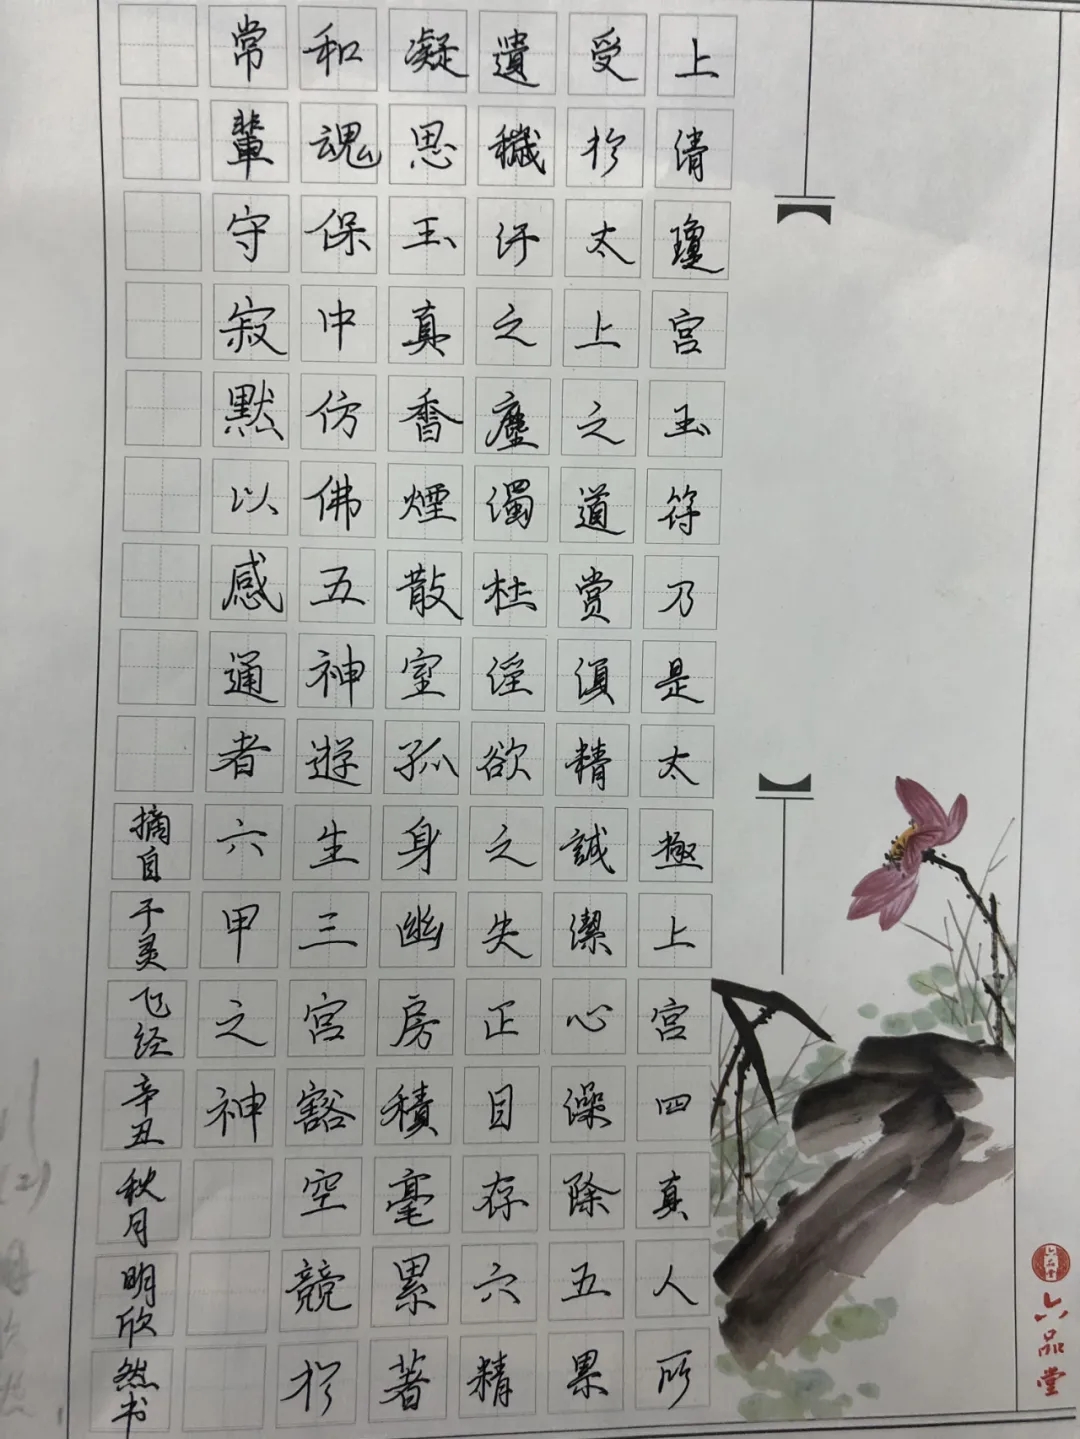 上清瓊宮玉符乃是太極上宮四真人所
受於太上之道賞須精誠潔心澡除五累
遺穢汙之塵濁杜淫欲之失正目存六精
凝思玉真香煙散室孤身幽房積毫累著
和魂保中仿佛五神遊生三宮豁空競於
常輩守寂默以感通者六甲之神
摘自于灵飞经辛丑秋月明欣然书
六品堂
六品堂